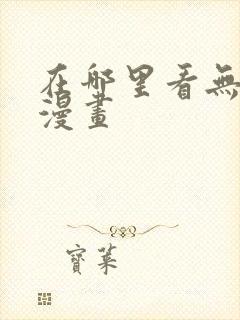 在哪里看無
漫畫
寶葉